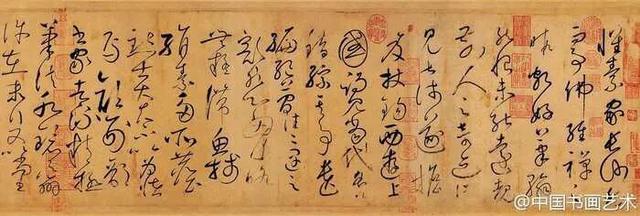 懷素家長沙幼而
事佛經禪之
暇頗好筆翰
然恨未能遠覩
前人之奇迹所
見甚淺遂擔
笈杖錫西遊上
國謁見當代名公
錯綜其事遺
編絕簡往往遇之
豁然心胸略
無疑滯魚牋
絹素多所塵
點士大夫不以為怪
焉顏刑部
書家者流精極
筆法水鏡之辨
許在末行又以尚
@中国书画艺术